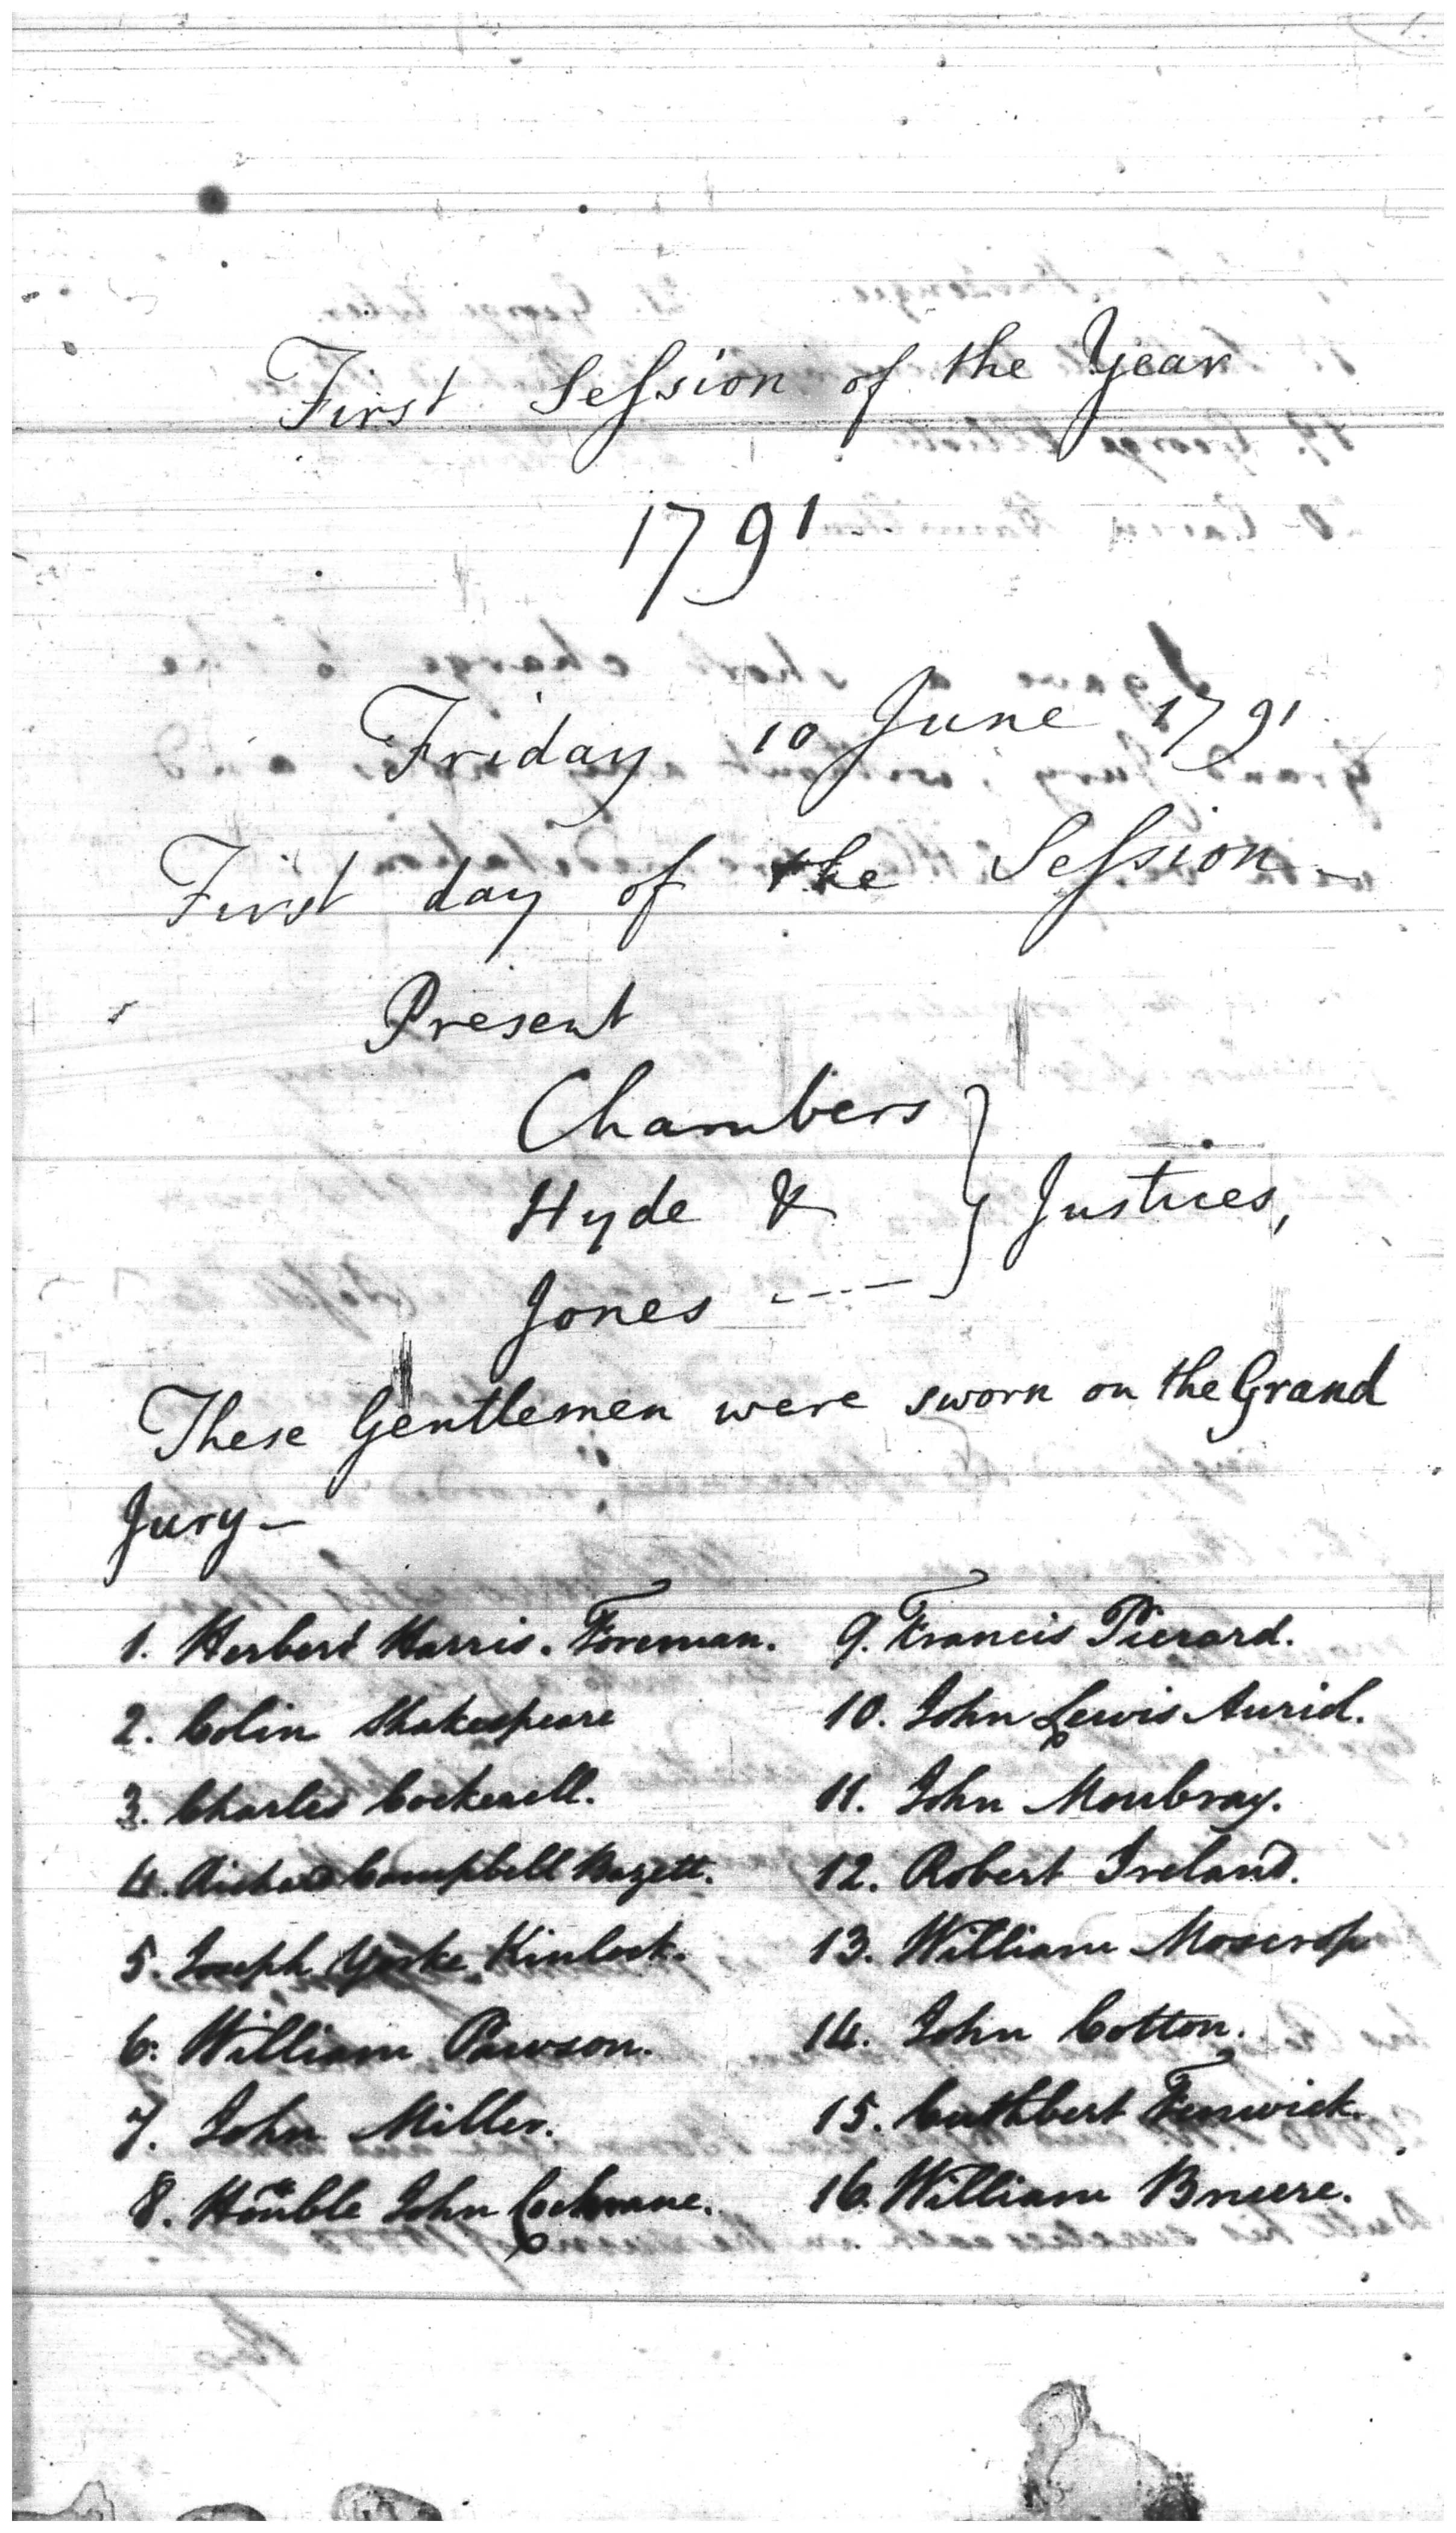 First Session of the Year
1791
Friday 10 June 1791
First day of the Session
Present
Chambers
Hyde &
Jones ----
Justices,
These Gentlemen were sworn on the Grand
Jury -
1. Herbert Harris. Foreman.
2. Colin Shakespeare
3. Charles Cockerell.
4. Richard Campbell Bazett.
5. Joseph Yorke Kinlock.
6. William Pawson.
7. John Miller.
8. Honble John Cochrane.
9. Francis Pierard.
10. John Lewis Auriol.
11. John Moubray.
12. Robert Ireland.
13. William Moscrop
14. John Cotton.
15. Cuthbert Fenwick.
16. William Bruere.